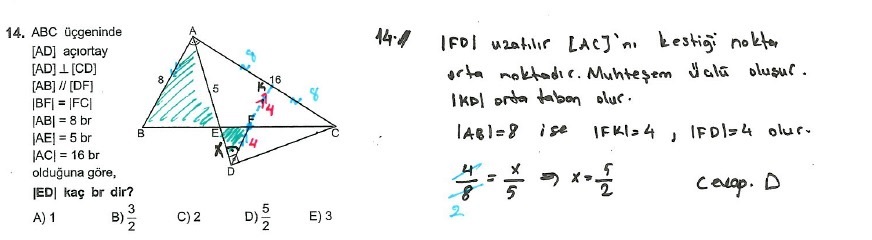 14. ABC üçgeninde
[AD] açıortay
[AD] ⊥ [CD]
[AB] // [DF]
|BF| = |FC|
|AB| = 8 br
|AE| = 5 br
|AC| = 16 br
olduğuna göre,
|ED| kaç br dir?
A) 1 B) 3/2 C) 2 D) 5/2 E) 3
A
8
8
5
K
16
8
4
B
E
F
C
X
4
D
14.
|FD| uzatılır [AC]'nı kestiği nokta
orta noktadır. Muhteşem Üçlü oluşur.
|KD| orta taban olur.
|AB|=8 ise |FK|=4 , |FD|=4 olur.
4/8 = x/5 ⇒ x = 5/2 Cevap. D
2